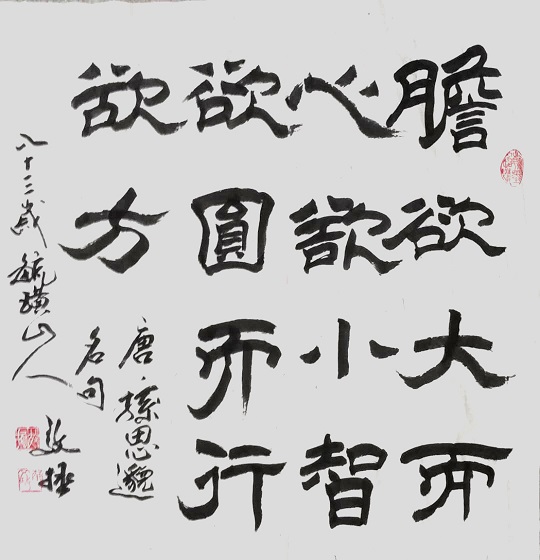 膽欲大而
心欲小智
欲圓而行
欲方
唐孫思邈
名句
八十三歲毓璜山人